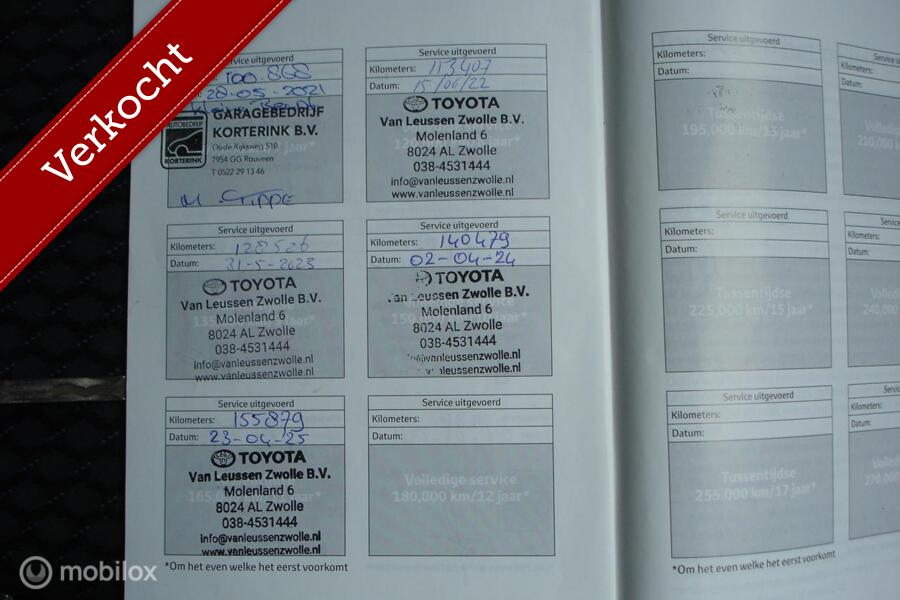 Verkocht
Service uitgevoerd
100.868
28-05-2021
GARAGEBEDRIJF
KORTERINK B.V.
Oude Rijksweg 510
7954 GG Rouveen
T 0522 29 13 46
AUTOBEDRIJF
KORTERINK
Service uitgevoerd
Kilometers: 113407
Datum: 15/06/22
TOYOTA
Van Leussen Zwolle B.V.
Molenland 6
8024 AL Zwolle
038-4531444
info@vanleussenzwolle.nl
www.vanleussenzwolle.nl
Service uitgevoerd
Kilometers: 128526
Datum: 31-5-2023
TOYOTA
Van Leussen Zwolle B.V.
Molenland 6
8024 AL Zwolle
038-4531444
info@vanleussenzwolle.nl
www.vanleussenzwolle.nl
Service uitgevoerd
Kilometers: 140479
Datum: 02-04-24
TOYOTA
Van Leussen Zwolle B.V.
Molenland 6
8024 AL Zwolle
038-4531444
info@vanleussenzwolle.nl
Service uitgevoerd
Kilometers: 155879
Datum: 23-04-25
TOYOTA
Van Leussen Zwolle B.V.
Molenland 6
8024 AL Zwolle
038-4531444
info@vanleussenzwolle.nl
www.vanleussenzwolle.nl
Service uitgevoerd
Kilometers:
Datum:
Volledige service
180,000 km/12 jaar*
*Om het even welke het eerst voorkomt
Service uitgevoerd
Kilometers:
Datum:
Tussentijdse
195,000 km/13 jaar*
Service uitgevoerd
Kilometers:
Datum:
Tussentijdse
225,000 km/15 jaar*
Service uitgevoerd
Kilometers:
Datum:
Tussentijdse
255,000 km/17 jaar*
*Om het even welke het eerst voorkomt
Kilometers:
Datum:
Volledig
210,000 k
Kilometers:
Datum:
Volled
240,000
Kilometers:
Datum:
Volle
270,000
mobilox